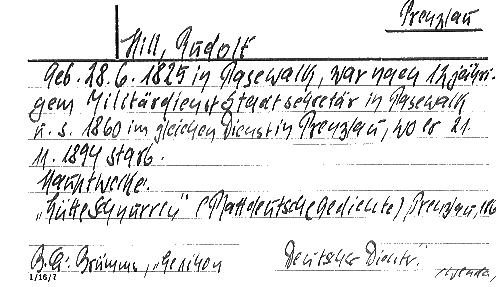 Prenzlau
Hill, Rudolf
Geb. 28.6.1825 in Pasewalk, war nach 12jähri-
gem Militärdienst Stadtsekretär in Pasewalk
u. s. 1860 im gleichen Dienst in Prenzlau, wo er 21.
11. 1894 starb.
Hauptwerke:
"Lütte Schnurren" (Plattdeutsche Gedichte) Prenzlau, 186
B. Qu: Brümmer, "Lexikon Deutscher Dichter"
1/16/7